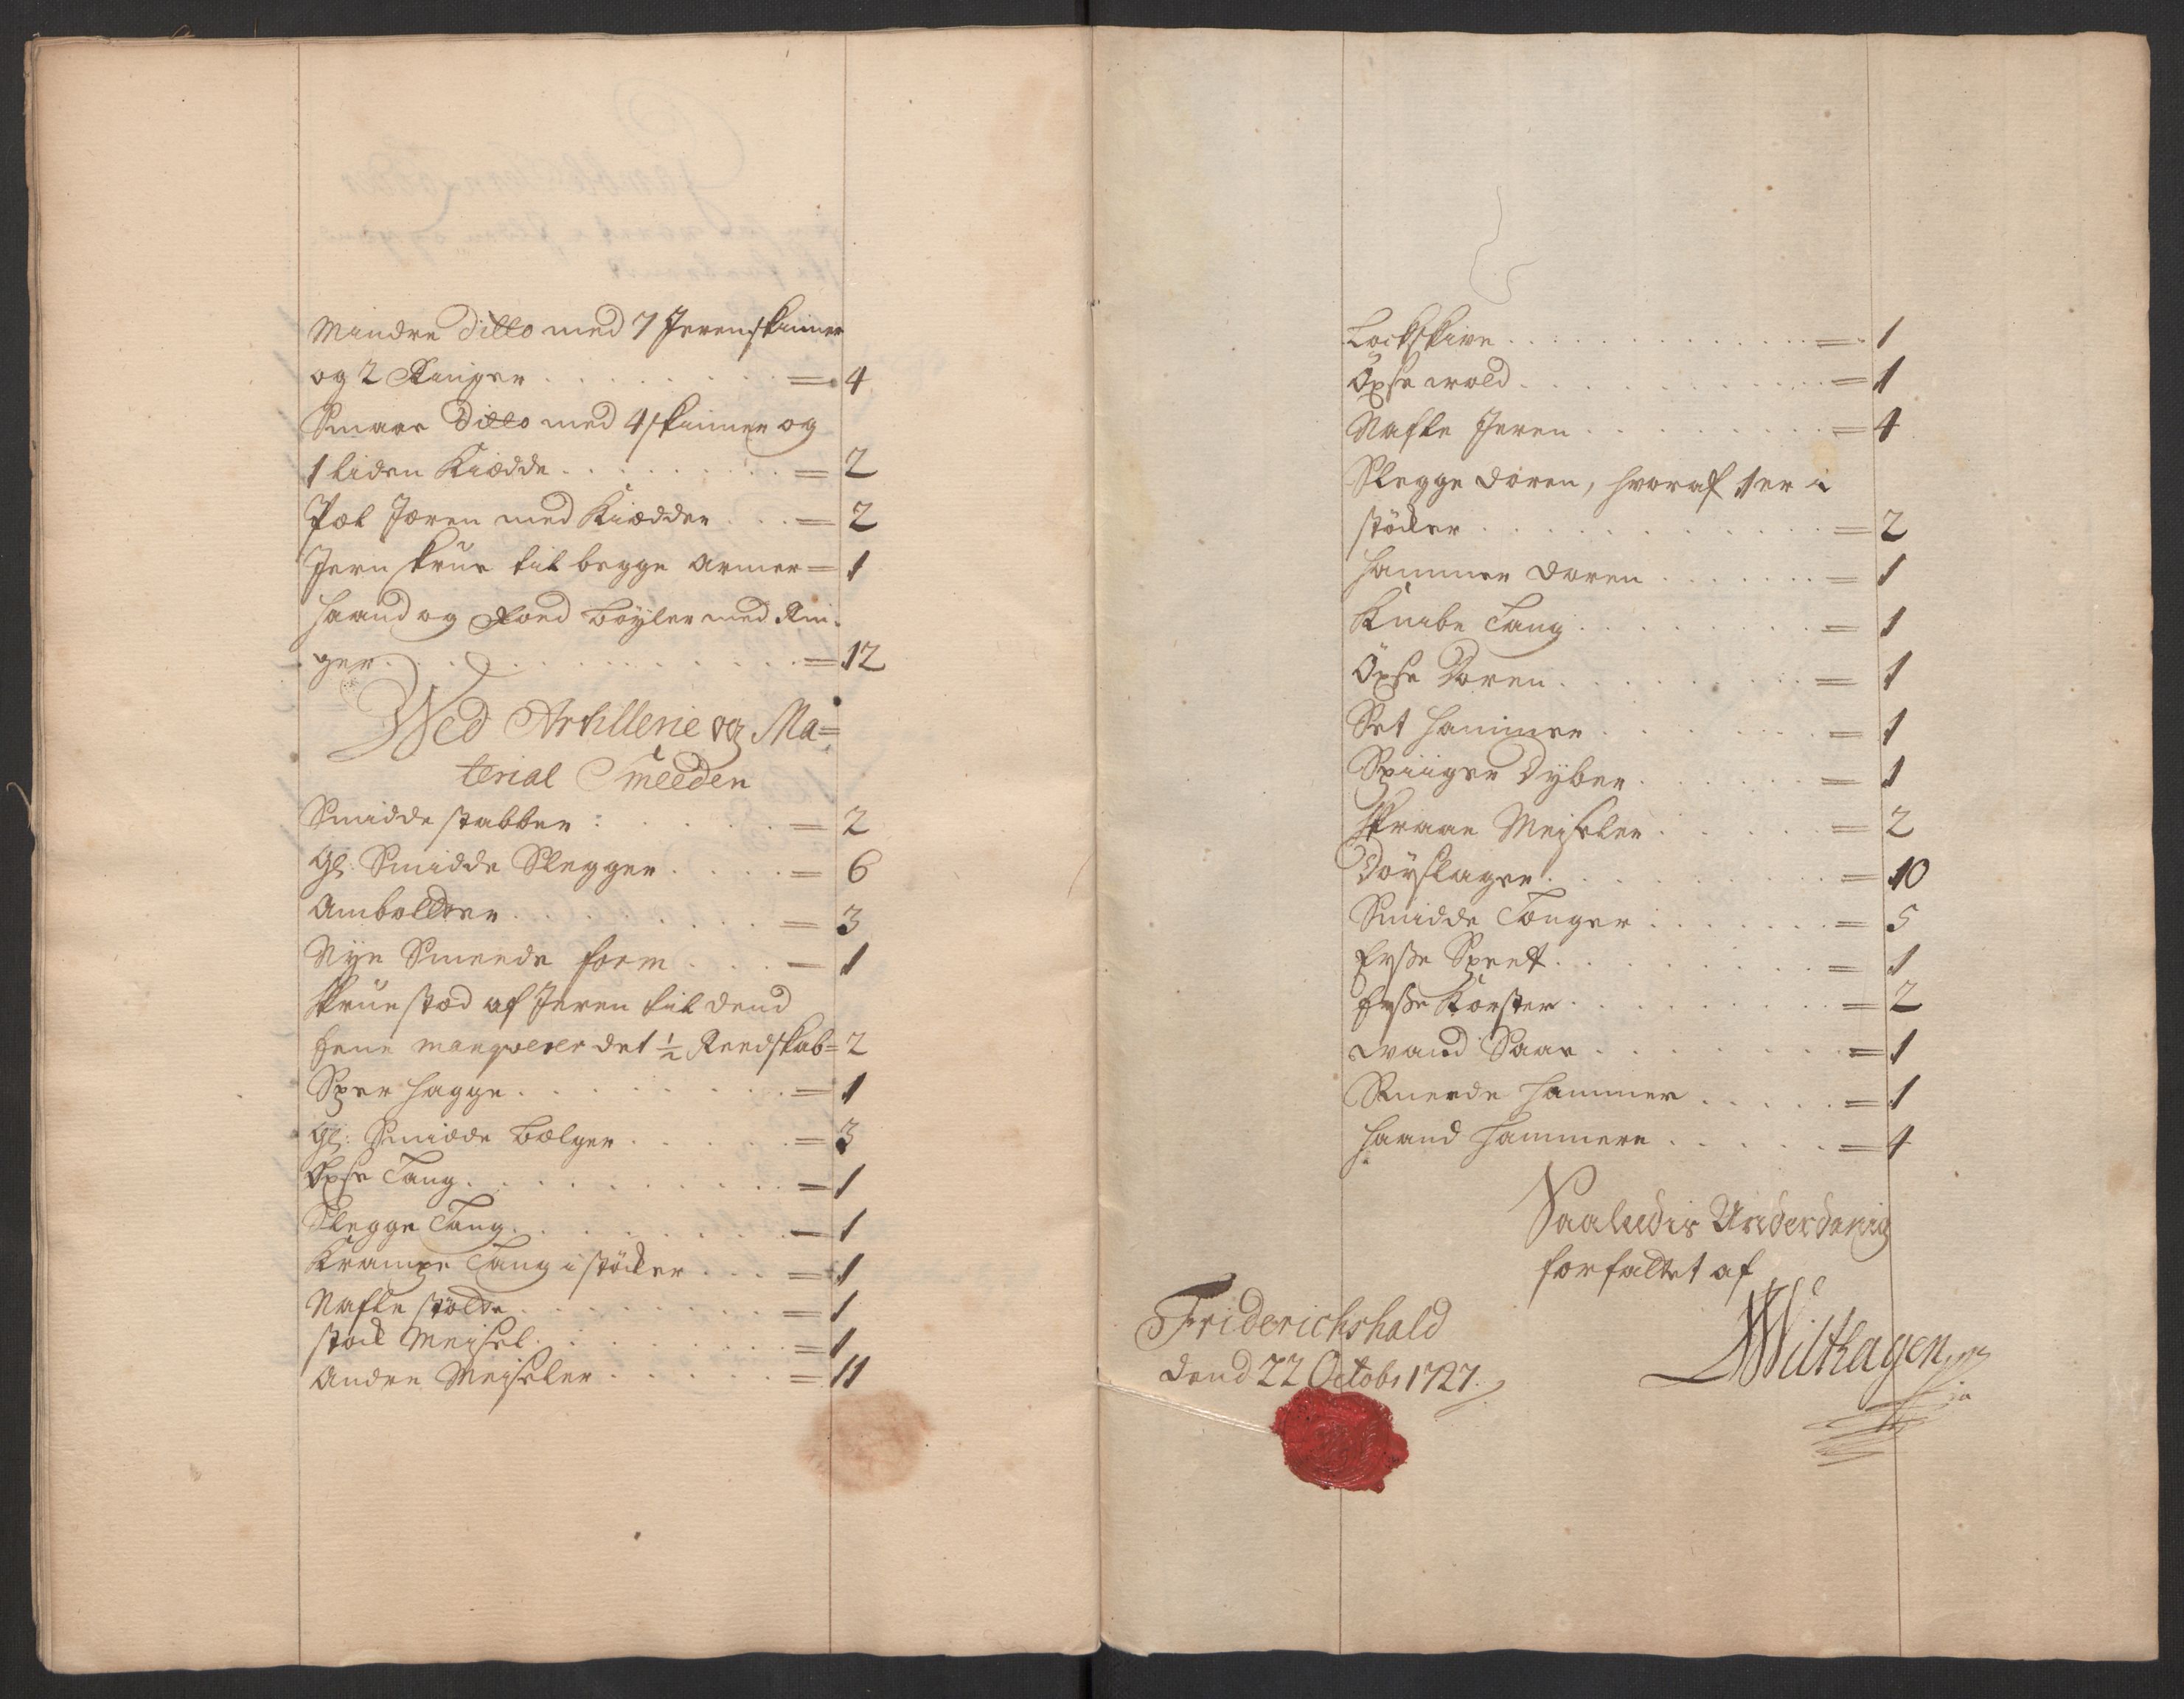 Mindre Ditto med 7 Jerenskinner
og 2 Ringer = 4
Smaae Ditto med 4 skinner og
1 liden Kiædde = 2
Pæl Jæren med Kiædder = 2
Jern skrue til begge Armer = 1
Haand og Foed Bøyler med Rin-
ger = 12
Wed Artillerie og Ma=
terial Smeeden
Smidde stabber = 2
Gl: Smidde Slegger = 6
Ambolder = 3
Nye Smeede form = 1
Skruestæd af Jeren til dend
Eene manqverer det ½ Reedskab = 2
Sper Hagge = 1
Gl: Smidde Bælger = 3
Öxse Tang = 1
Slegge Tang = 1
Krampe Tang i stöcker = 1
Nafle stölde = 1
stock Meisel = 1
Andre Meisler = 11
Lockskive = 1
Öxse wold = 1
Nafle Jeren = 4
Slegge Doren, hvoraf 1 er i
stöcker = 2
Hammer Doren = 1
Knibe Tang = 1
Öxse Doren = 1
Set Hammer = 1
Spiiger Dyber = 1
Skraae Meisler = 2
Döyslager = 10
Smidde Tænger = 5
Esse Speet = 1
Esse Koster = 2
Wand Saae = 1
Smede Hammer = 1
Haand Hammere = 4
Saaledis Underdanig
forfattet af
Friderichshald
dend 22 Octobr 1727.
Wilthagen